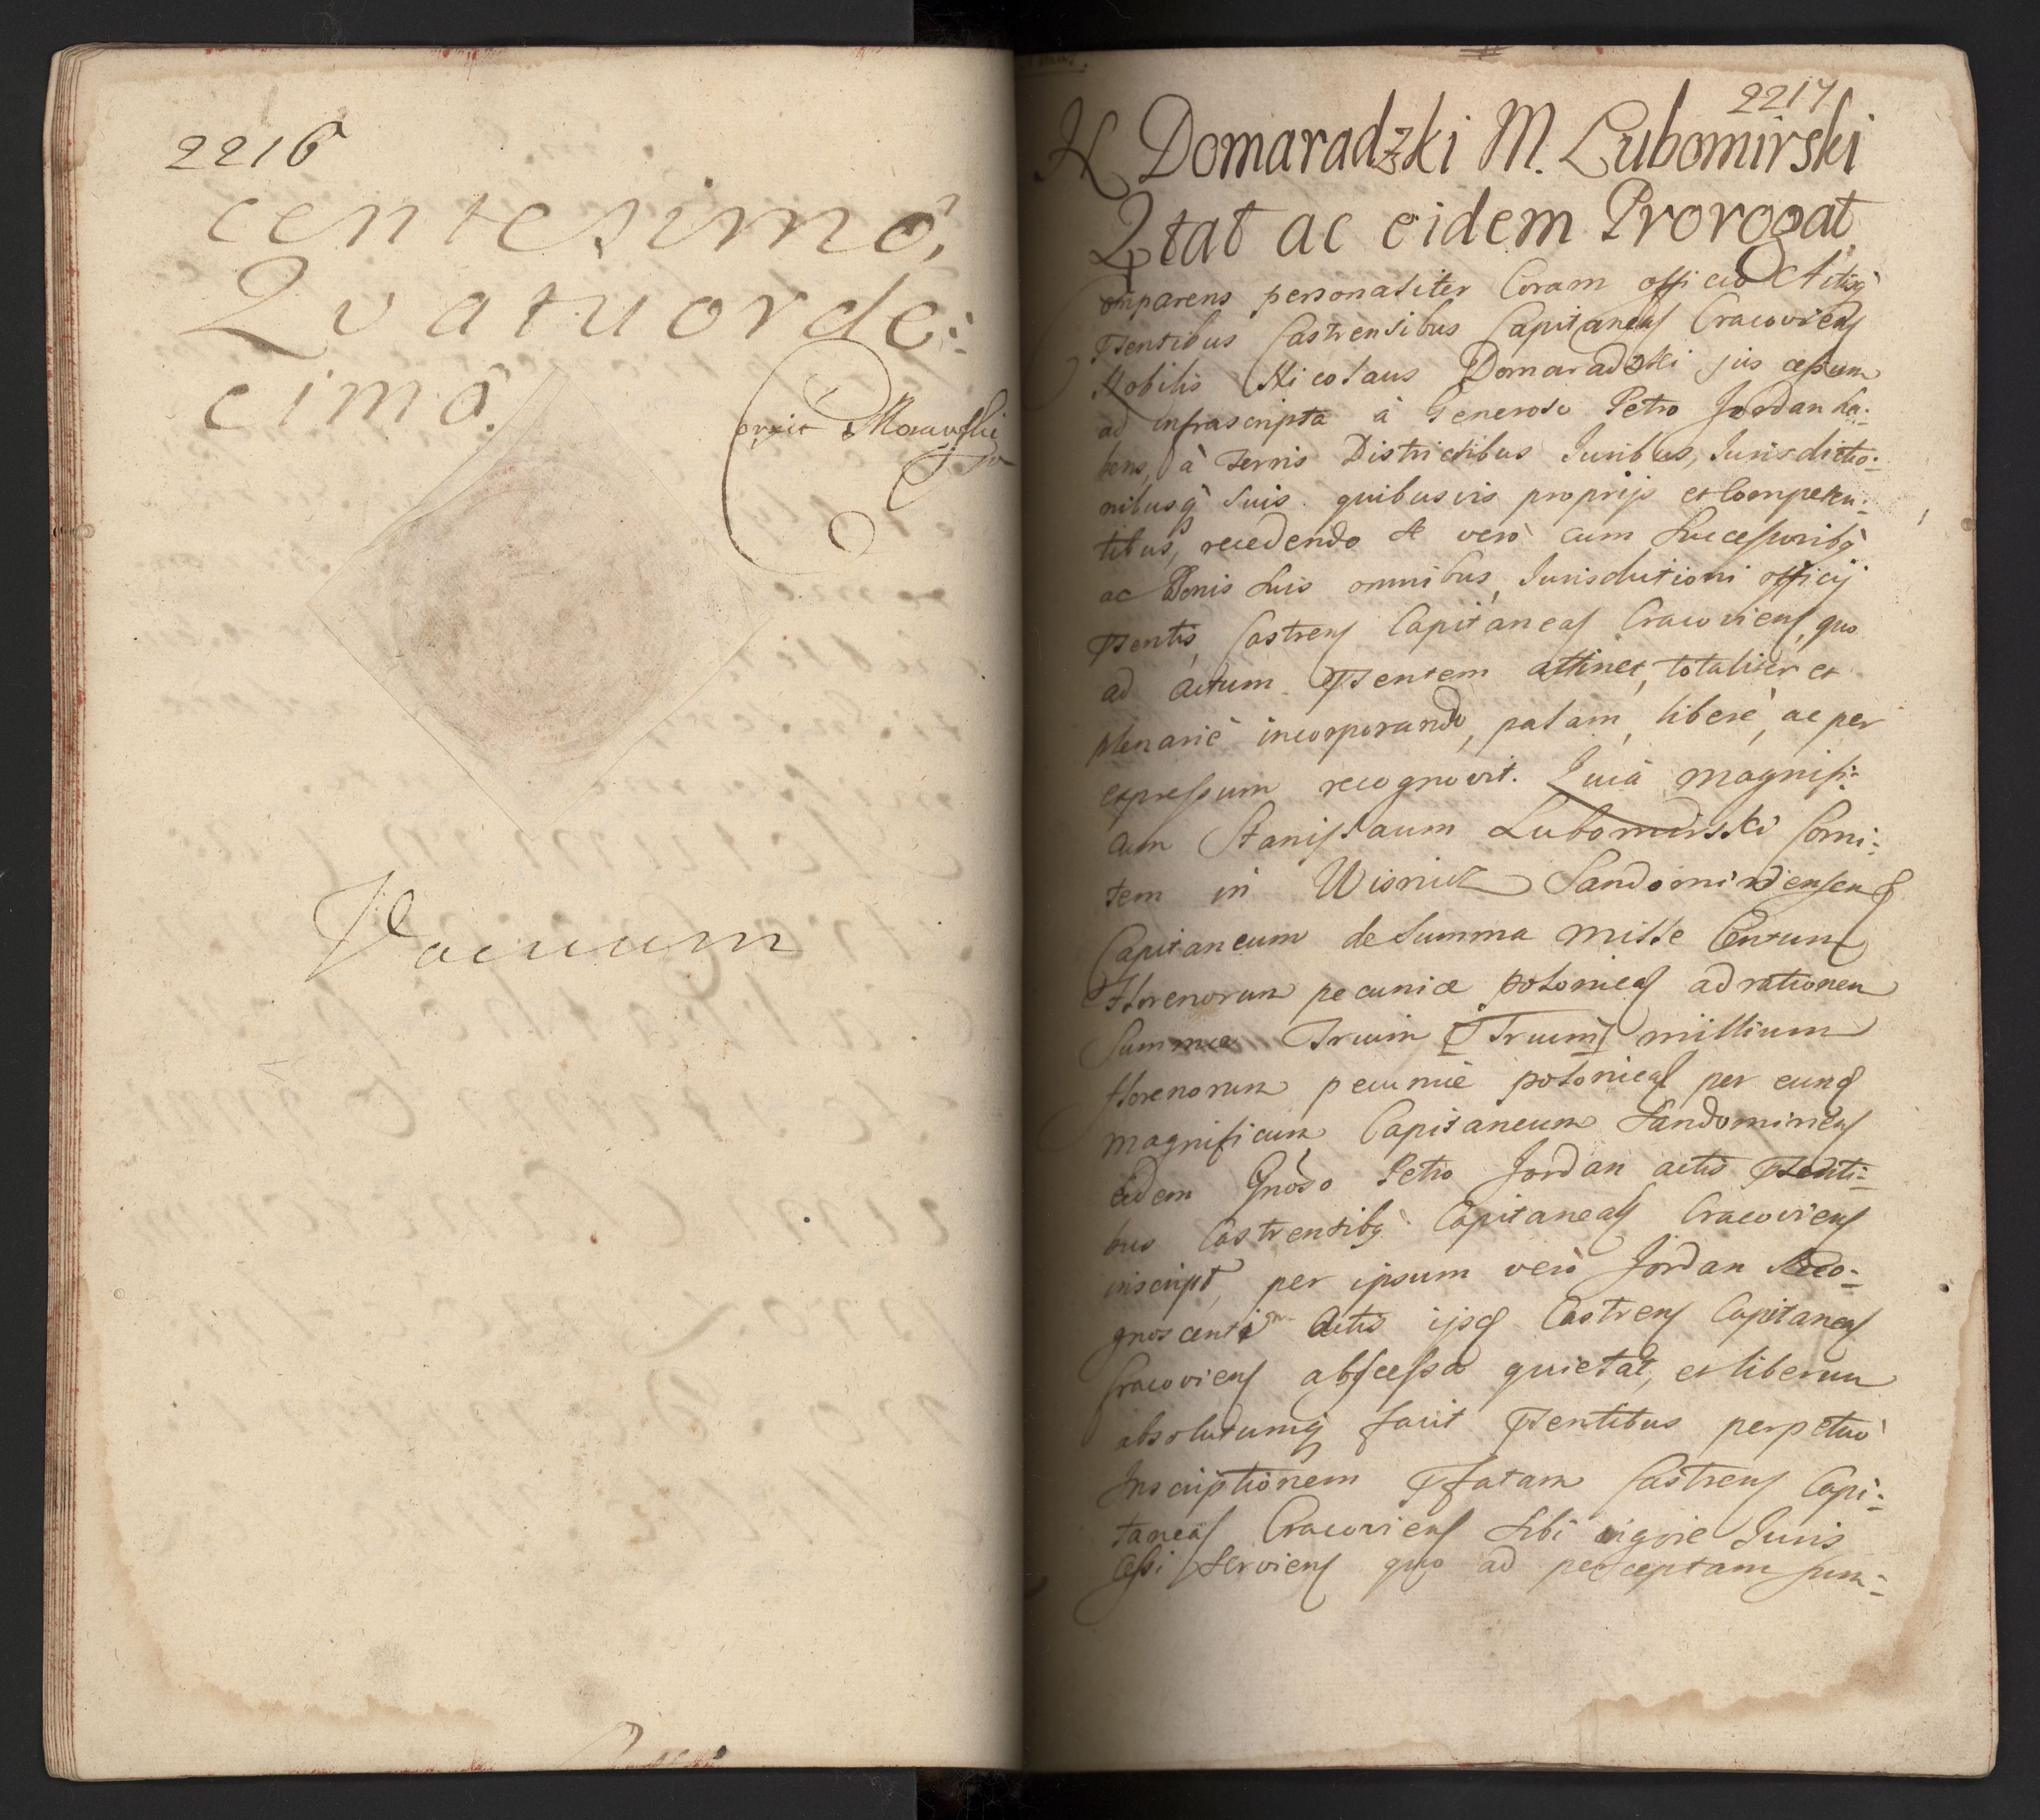 2216
centesimô,
Quatuorde:
cimô.
Vacuum
2217
N Domaradzki M. Lubomirski
Qtat ac eidem Prorogat
Comparens personaliter Coram officio Actisq̀
Psentibus Castrensibus Capitaneaꝭ Cracovienꝭ
Nobilis Nicolaus Domaradzki jus cessum
ad infrascripta à Generoso Petro Jordan ha:
bens, à Terris Districtibus Juribus, Jurisdictio:
nibusq̀ suis quibusvis proprijs et Competen:
tibus, recedendo se verò cum Successoribq̀
ac Bonis suis omnibus, Jurisdictioni officij
Psentis, Castrenꝭ Capitaneaꝭ Cracovienꝭ, quo
ad actum Psentem attinet, totaliter et
plenariè incorporando, palam, liberè, ac per
expressum recognovit. Quià magnifi:
cum Stanislaum Lubomirski Comi:
tem in Wisnicz Sandomiriensem
Capitaneum de Summa mille Centum
florenorum pecuniæ polonicaꝭ ad rationem
Summæ Trium [Trium] millium
florenorum pecuniè polonicaꝭ per eunꝗ
magnificum Capitaneum Sandomirienꝭ
eidem Gnoso Petro Jordan actis Psenti:
bus Castrensibq̀ Capitaneaꝭ Cracovienꝭ
inscript, per ipsum verò Jordan Reco:
gnoscenti actis ipsꝗ Castrenꝭ Capitaneaꝭ
Cracovienꝭ abscessa quietat, et liberum
absolutumq̀ facit Psentibus perpetuò
Inscriptionem Pfatam Castrenꝭ Capi:
taneaꝭ Cracovienꝭ sibi vigore Juris
cessi servienꝭ quo ad perceptam sum: